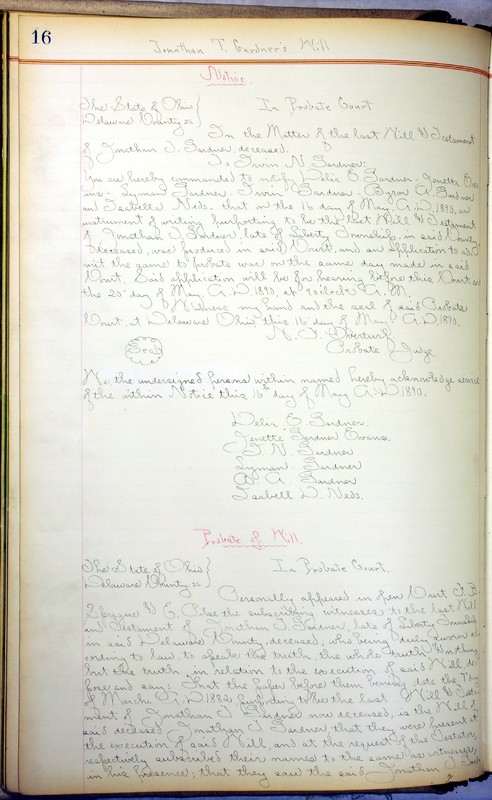 16
Jonathan T. Gardner's Will
Notice.
The State of Ohio }
Delaware County ss } In Probate Court
In the Matter of the last Will & Testament
of Jonathan T. Gardner, deceased.
To Irwin N. Gardner:
You are hereby commanded to notify Delia E. Gardner - Jenette
- Lyman Gardner - Irwin Gardner - Byron A. Gardner
and Isabella Neds. that on the 16 day of May A.D. 1890, an
instrument of writing purporting to be the last Will & Testament
of Jonathan T. Gardner, late of Liberty Township, in said County
deceased, was produced in said Court, and an application to ad
mit the same to probate was on the same day made in said
Court. Said application will be for hearing before this Court on
the 20" day of May, A.D. 1890, at 9 o'clock A.M.
Witness my hand and the seal of said Probate
Court, at Delaware Ohio, this 16" day of May A.D. 1890.
Overturf
Seal Probate Judge
We, the undersigned persons within named hereby acknowledge service
of the within Notice this 16" day of May A.D. 1890.
Delia E. Gardner.
Jenette Gardner Evans.
I. N. Gardner
Lyman Gardner
B. A. Gardner
Isabell D. Neds.
Probate of Will.
The State of Ohio }
Delaware County ss } In Probate Court.
Personally appeared in open Court
& C. the subscribing witnesses to the last Will
and Testament of Jonathan T. Gardner, late of Liberty Township
in said Delaware County, deceased, who being duly sworn ac
cording to law, to speake the truth, the whole truth & nothing
but the truth, in relation to the execution of said Will, de
pose and say: That the paper before them bearing date the day
of March A.D. 1882, purporting to be the last Will & Testa
ment of Jonathan T. Gardner now deceased, is the Will of
said deceased Jonathan T. Gardner, that they were present at
the execution of said Will, and at the request of the Testator,
respectively subscribed their names to the same as witnesses,
in his presence; that they saw the said Jonathan T.